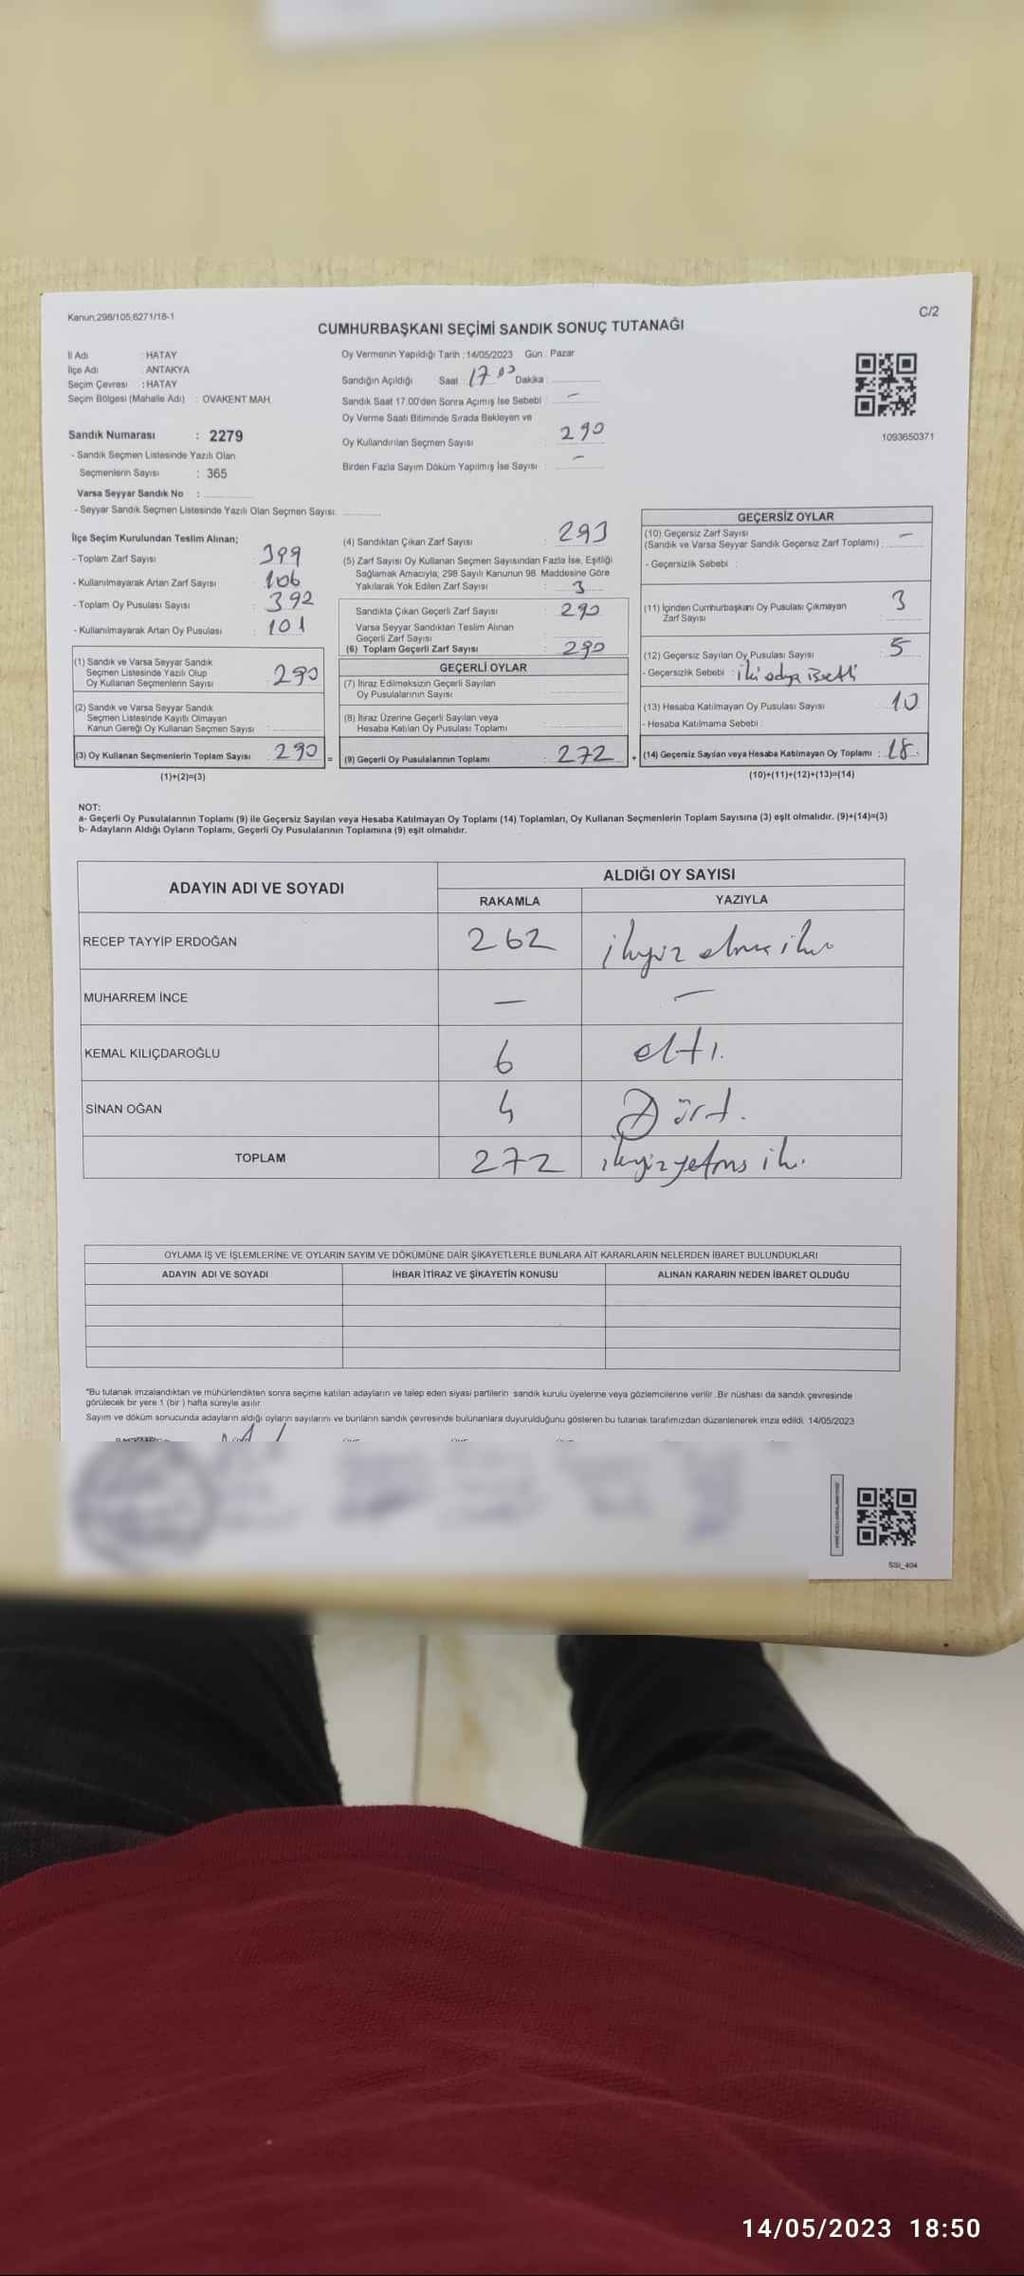 Kanun;298/105;6271/18-1
C/2
CUMHURBAŞKANI SEÇİMİ SANDIK SONUÇ TUTANAĞI
İl Adı : HATAY
İlçe Adı : ANTAKYA
Seçim Çevresi : HATAY
Seçim Bölgesi (Mahalle Adı) : OVAKENT MAH.
Sandık Numarası : 2279
- Sandık Seçmen Listesinde Yazılı Olan
Seçmenlerin Sayısı : 365
Varsa Seyyar Sandık No :
- Seyyar Sandık Seçmen Listesinde Yazılı Olan Seçmen Sayısı:
Oy Vermenin Yapıldığı Tarih : 14/05/2023 Gün : Pazar
Sandığın Açıldığı Saat : 17 Dakika :
Sandık Saat 17.00'den Sonra Açılmış İse Sebebi : -
Oy Verme Saati Bitiminde Sırada Bekleyen ve
Oy Kullandırılan Seçmen Sayısı : 290
Birden Fazla Sayım Döküm Yapılmış İse Sayısı : -
1093650371
İlçe Seçim Kurulundan Teslim Alınan;
- Toplam Zarf Sayısı : 399
- Kullanılmayarak Artan Zarf Sayısı : 106
- Toplam Oy Pusulası Sayısı : 392
- Kullanılmayarak Artan Oy Pusulası : 101
(1) Sandık ve Varsa Seyyar Sandık
Seçmen Listesinde Yazılı Olup
Oy Kullanan Seçmenlerin Sayısı : 290
(2) Sandık ve Varsa Seyyar Sandık
Seçmen Listesinde Kayıtlı Olmayan
Kanun Gereği Oy Kullanan Seçmen Sayısı :
(3) Oy Kullanan Seçmenlerin Toplam Sayısı : 290 =
(1)+(2)=(3)
(4) Sandıktan Çıkan Zarf Sayısı : 293
(5) Zarf Sayısı Oy Kullanan Seçmen Sayısından Fazla İse, Eşitliği
Sağlamak Amacıyla, 298 Sayılı Kanunun 98. Maddesine Göre
Yakılarak Yok Edilen Zarf Sayısı : 3
Sandıkta Çıkan Geçerli Zarf Sayısı : 290
Varsa Seyyar Sandıktan Teslim Alınan
Geçerli Zarf Sayısı
(6) Toplam Geçerli Zarf Sayısı : 290
GEÇERLİ OYLAR
(7) İtiraz Edilmeksizin Geçerli Sayılan
Oy Pusulalarının Sayısı :
(8) İtiraz Üzerine Geçerli Sayılan veya
Hesaba Katılan Oy Pusulası Toplamı :
(9) Geçerli Oy Pusulalarının Toplamı : 272 +
GEÇERSİZ OYLAR
(10) Geçersiz Zarf Sayısı
(Sandık ve Varsa Seyyar Sandık Geçersiz Zarf Toplamı) : -
- Geçersizlik Sebebi :
(11) İçinden Cumhurbaşkanı Oy Pusulası Çıkmayan
Zarf Sayısı : 3
(12) Geçersiz Sayılan Oy Pusulası Sayısı : 5
- Geçersizlik Sebebi : iki
(13) Hesaba Katılmayan Oy Pusulası Sayısı : 10
- Hesaba Katılmama Sebebi :
(14) Geçersiz Sayılan veya Hesaba Katılmayan Oy Toplamı : 18
(10)+(11)+(12)+(13)=(14)
NOT:
a- Geçerli Oy Pusulalarının Toplamı (9) ile Geçersiz Sayılan veya Hesaba Katılmayan Oy Toplamı (14) Toplamları, Oy Kullanan Seçmenlerin Toplam Sayısına (3) eşit olmalıdır. (9)+(14)=(3)
b- Adayların Aldığı Oyların Toplamı, Geçerli Oy Pusulalarının Toplamına (9) eşit olmalıdır.
ADAYIN ADI VE SOYADI
ALDIĞI OY SAYISI
RAKAMLA YAZIYLA
RECEP TAYYİP ERDOĞAN 262 ikiyüz altmış iki
MUHARREM İNCE - -
KEMAL KILIÇDAROĞLU 6 altı.
SİNAN OĞAN 4 Dört.
TOPLAM 272 ikiyüz yetmiş iki.
OYLAMA İŞ VE İŞLEMLERİNE VE OYLARIN SAYIM VE DÖKÜMÜNE DAİR ŞİKAYETLERLE BUNLARA AİT KARARLARIN NELERDEN İBARET BULUNDUKLARI
ADAYIN ADI VE SOYADI İHBAR İTİRAZ VE ŞİKAYETİN KONUSU ALINAN KARARIN NEDEN İBARET OLDUĞU
*Bu tutanak imzalandıktan ve mühürlendikten sonra seçime katılan adayların ve talep eden siyasi partilerin sandık kurulu üyelerine veya gözlemcilerine verilir. Bir nüshası da sandık çevresinde
görülecek bir yere 1 (bir ) hafta süreyle asılır.
Sayım ve döküm sonucunda adayların aldığı oyların sayılarını ve bunların sandık çevresinde bulunanlara duyurulduğunu gösteren bu tutanak tarafımızdan düzenlenerek imza edildi. 14/05/2023
SSI_404
14/05/2023 18:50